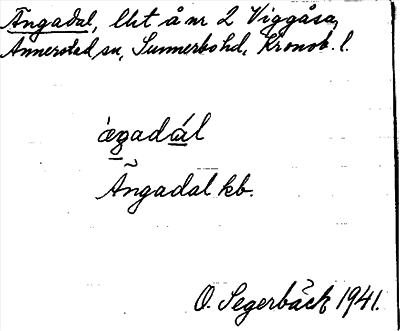 Ängadal, lht å nr 2 Viggåsa,
Annerstad sn, Sunnerbo hd, Kronob. l.
ägadál
Ängadal kb.
O. Segerbäck 1941.